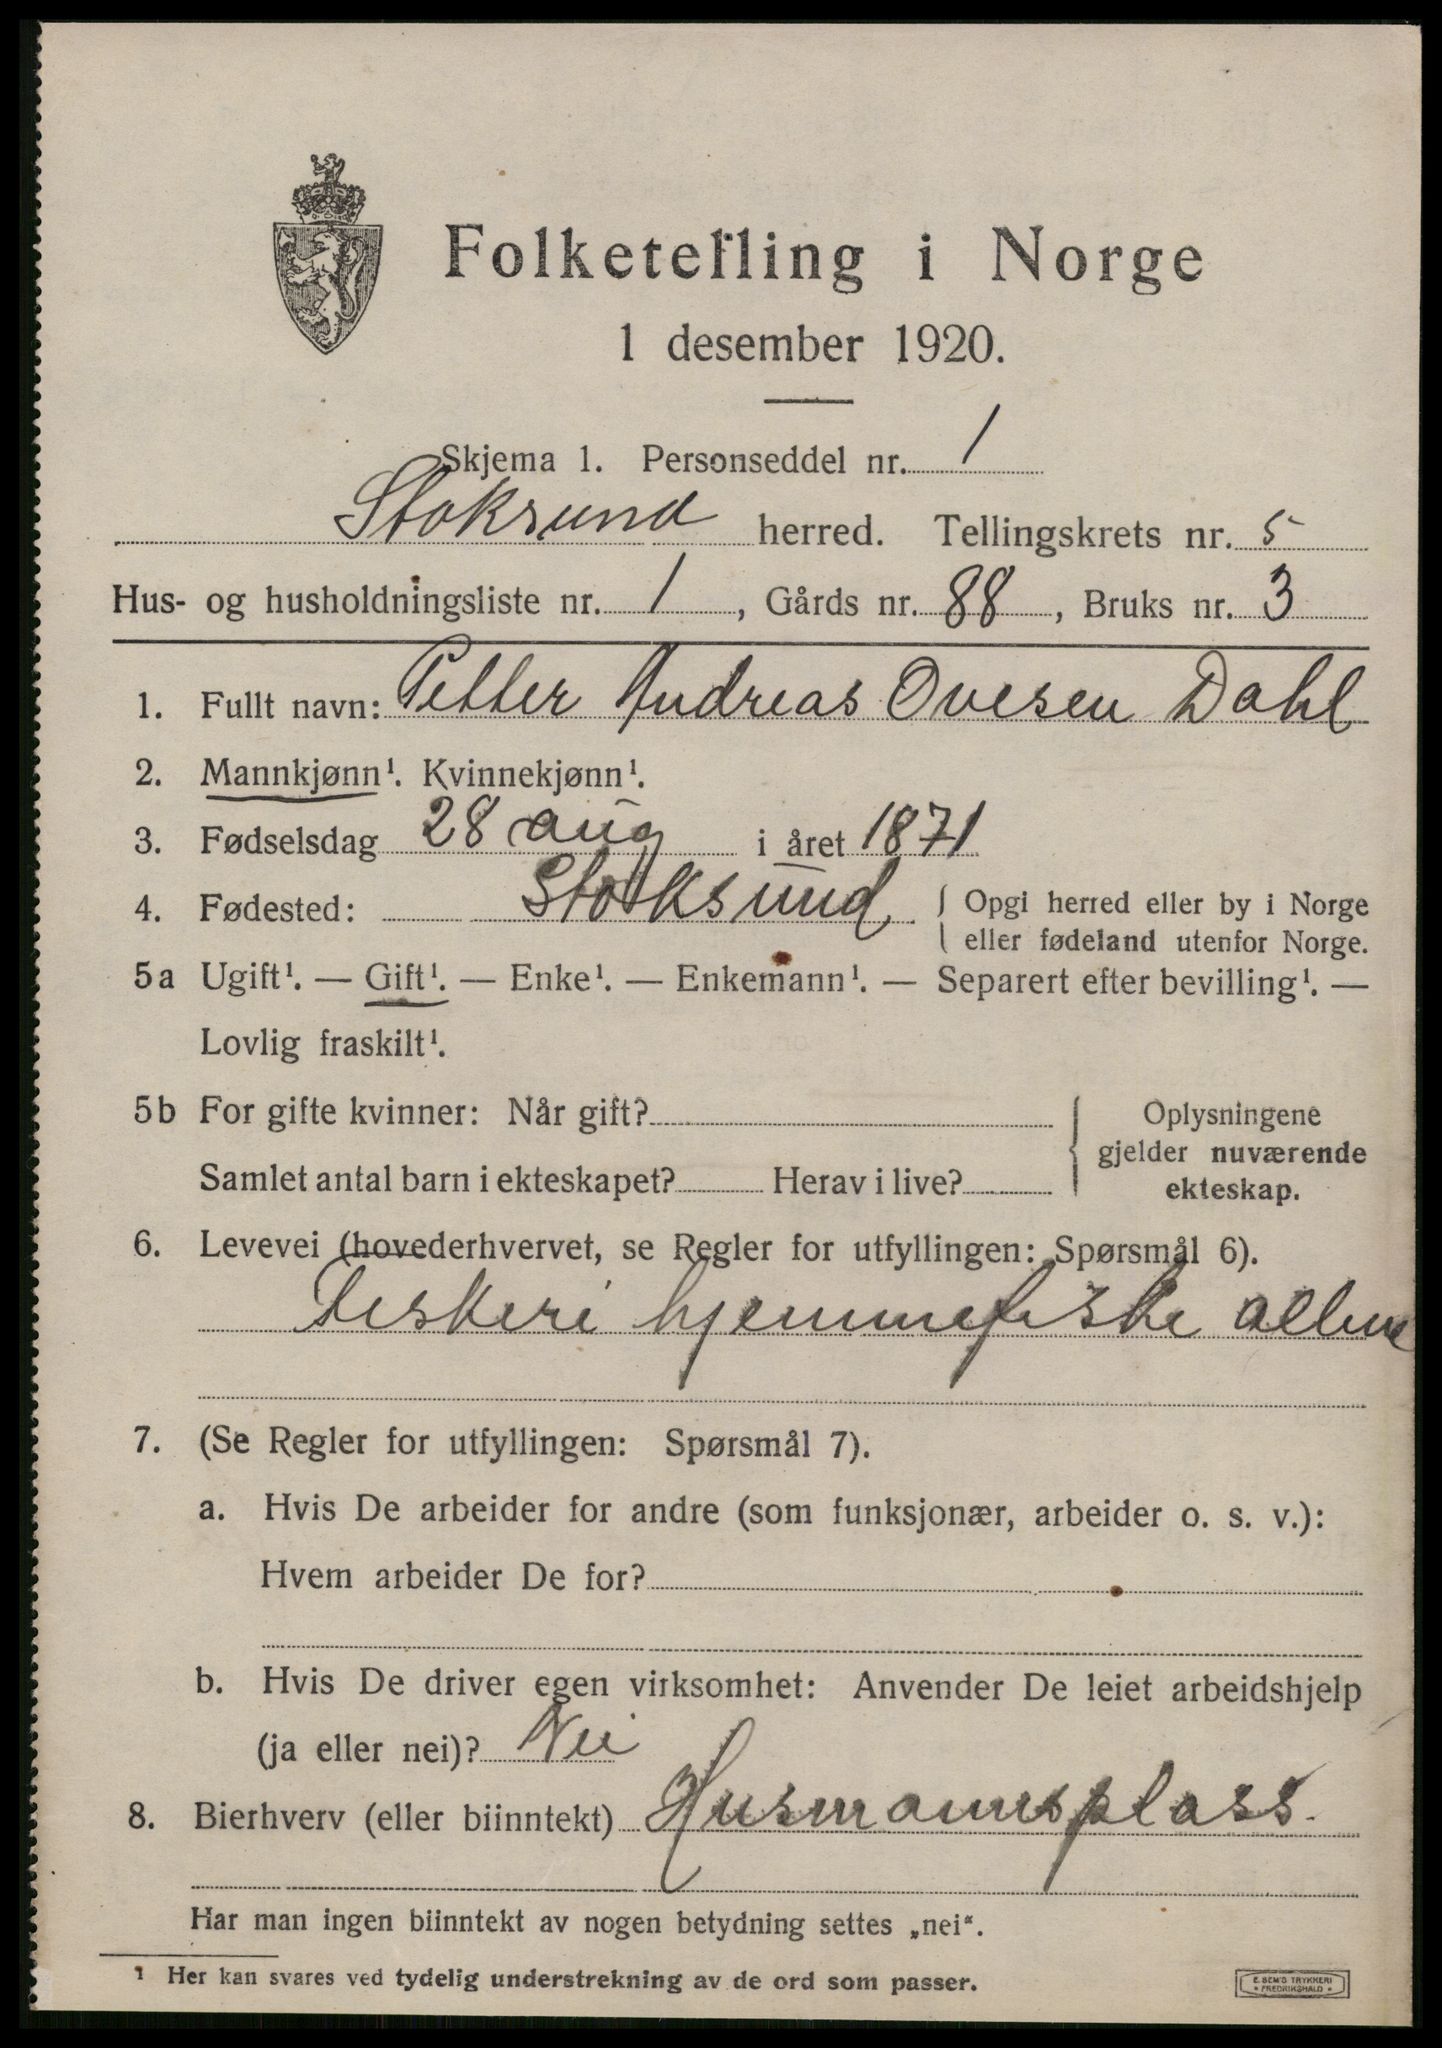 Folketelling i Norge
1 desember 1920.
Skjema 1. Personseddel nr. 1
Stoksund herred. Tellingskrets nr. 5
Hus- og husholdningsliste nr. 1, Gårds nr. 88, Bruks nr. 3
1. Fullt navn: Petter Andreas Ovesen Dahl
2. Mannkjønn¹. Kvinnekjønn¹.
3. Fødselsdag 28 aug i året 1871
4. Fødested: Stoksund { Opgi herred eller by i Norge
eller fødeland utenfor Norge.
5a Ugift¹. — Gift¹. — Enke¹. — Enkemann¹. — Separert efter bevilling¹. —
Lovlig fraskilt¹.
5b For gifte kvinner: Når gift? { Oplysningene
gjelder nuværende
Samlet antal barn i ekteskapet? Herav i live? ekteskap.
6. Levevei (hovederhvervet, se Regler for utfyllingen: Spørsmål 6).
Fiskeri hjemmefiske allene
7. (Se Regler for utfyllingen: Spørsmål 7).
a. Hvis De arbeider for andre (som funksjonær, arbeider o. s. v.):
Hvem arbeider De for?
b. Hvis De driver egen virksomhet: Anvender De leiet arbeidshjelp
(ja eller nei)? Nei
8. Bierhverv (eller biinntekt) Husmannsplass
Har man ingen biinntekt av nogen betydning settes „nei“.
¹ Her kan svares ved tydelig understrekning av de ord som passer.
E. SEM'S TRYKKERI
• FREDRIKSHALD •